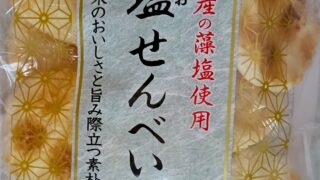 産の藻塩使用
お
塩せんべい
米のおいしさと旨み際立つ素朴